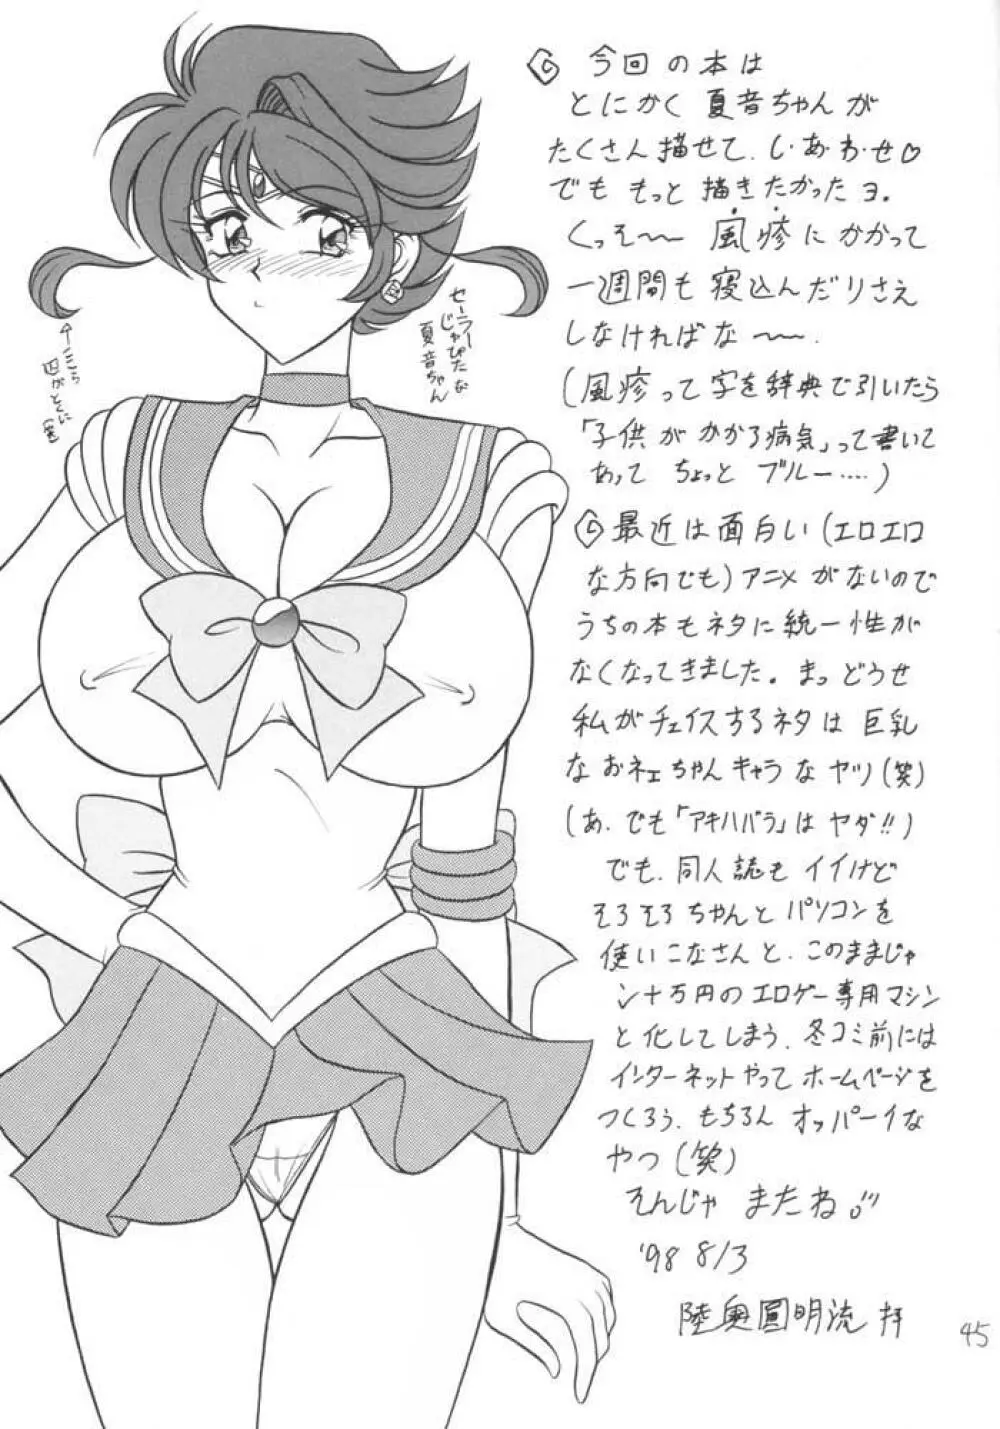 今回の本は
とにかく夏音ちゃんが
たくさん描せて、し・あ・わ・せ♡
でももっと描きたかったヨ。
くっそ〜〜風疹にかかって
一週間も寝込んだりさえ
しなければな〜〜.
(風疹って字を辞典で引いたら
「子供がかかる病気」って書いて
あってちょっとブルー……)
最近は面白い(エロエロ
な方向でも)アニメがないので
うちの本もネタに統一性が
なくなってきました。まっどうせ
私がチェイスするネタは巨乳
なおネェちゃんキャラなヤツ(笑)
(あ、でも「アキハバラ」はヤダ!!)
でも、同人誌もイイけど
そろそろちゃんとパソコンを
使いこなさんと、このままじゃ
ン十万円のエロゲー専用マシン
と化してしまう、冬コミ前には
インターネットやってホームページを
つくろう、もちろんオッパーイな
やつ(笑)
そんじゃまたね。!!
'98 8/3
陸奥圓明流 拝
セーラー
じゃぴたな
夏音ちゃん
←ここら
辺がとくに
(笑)
45